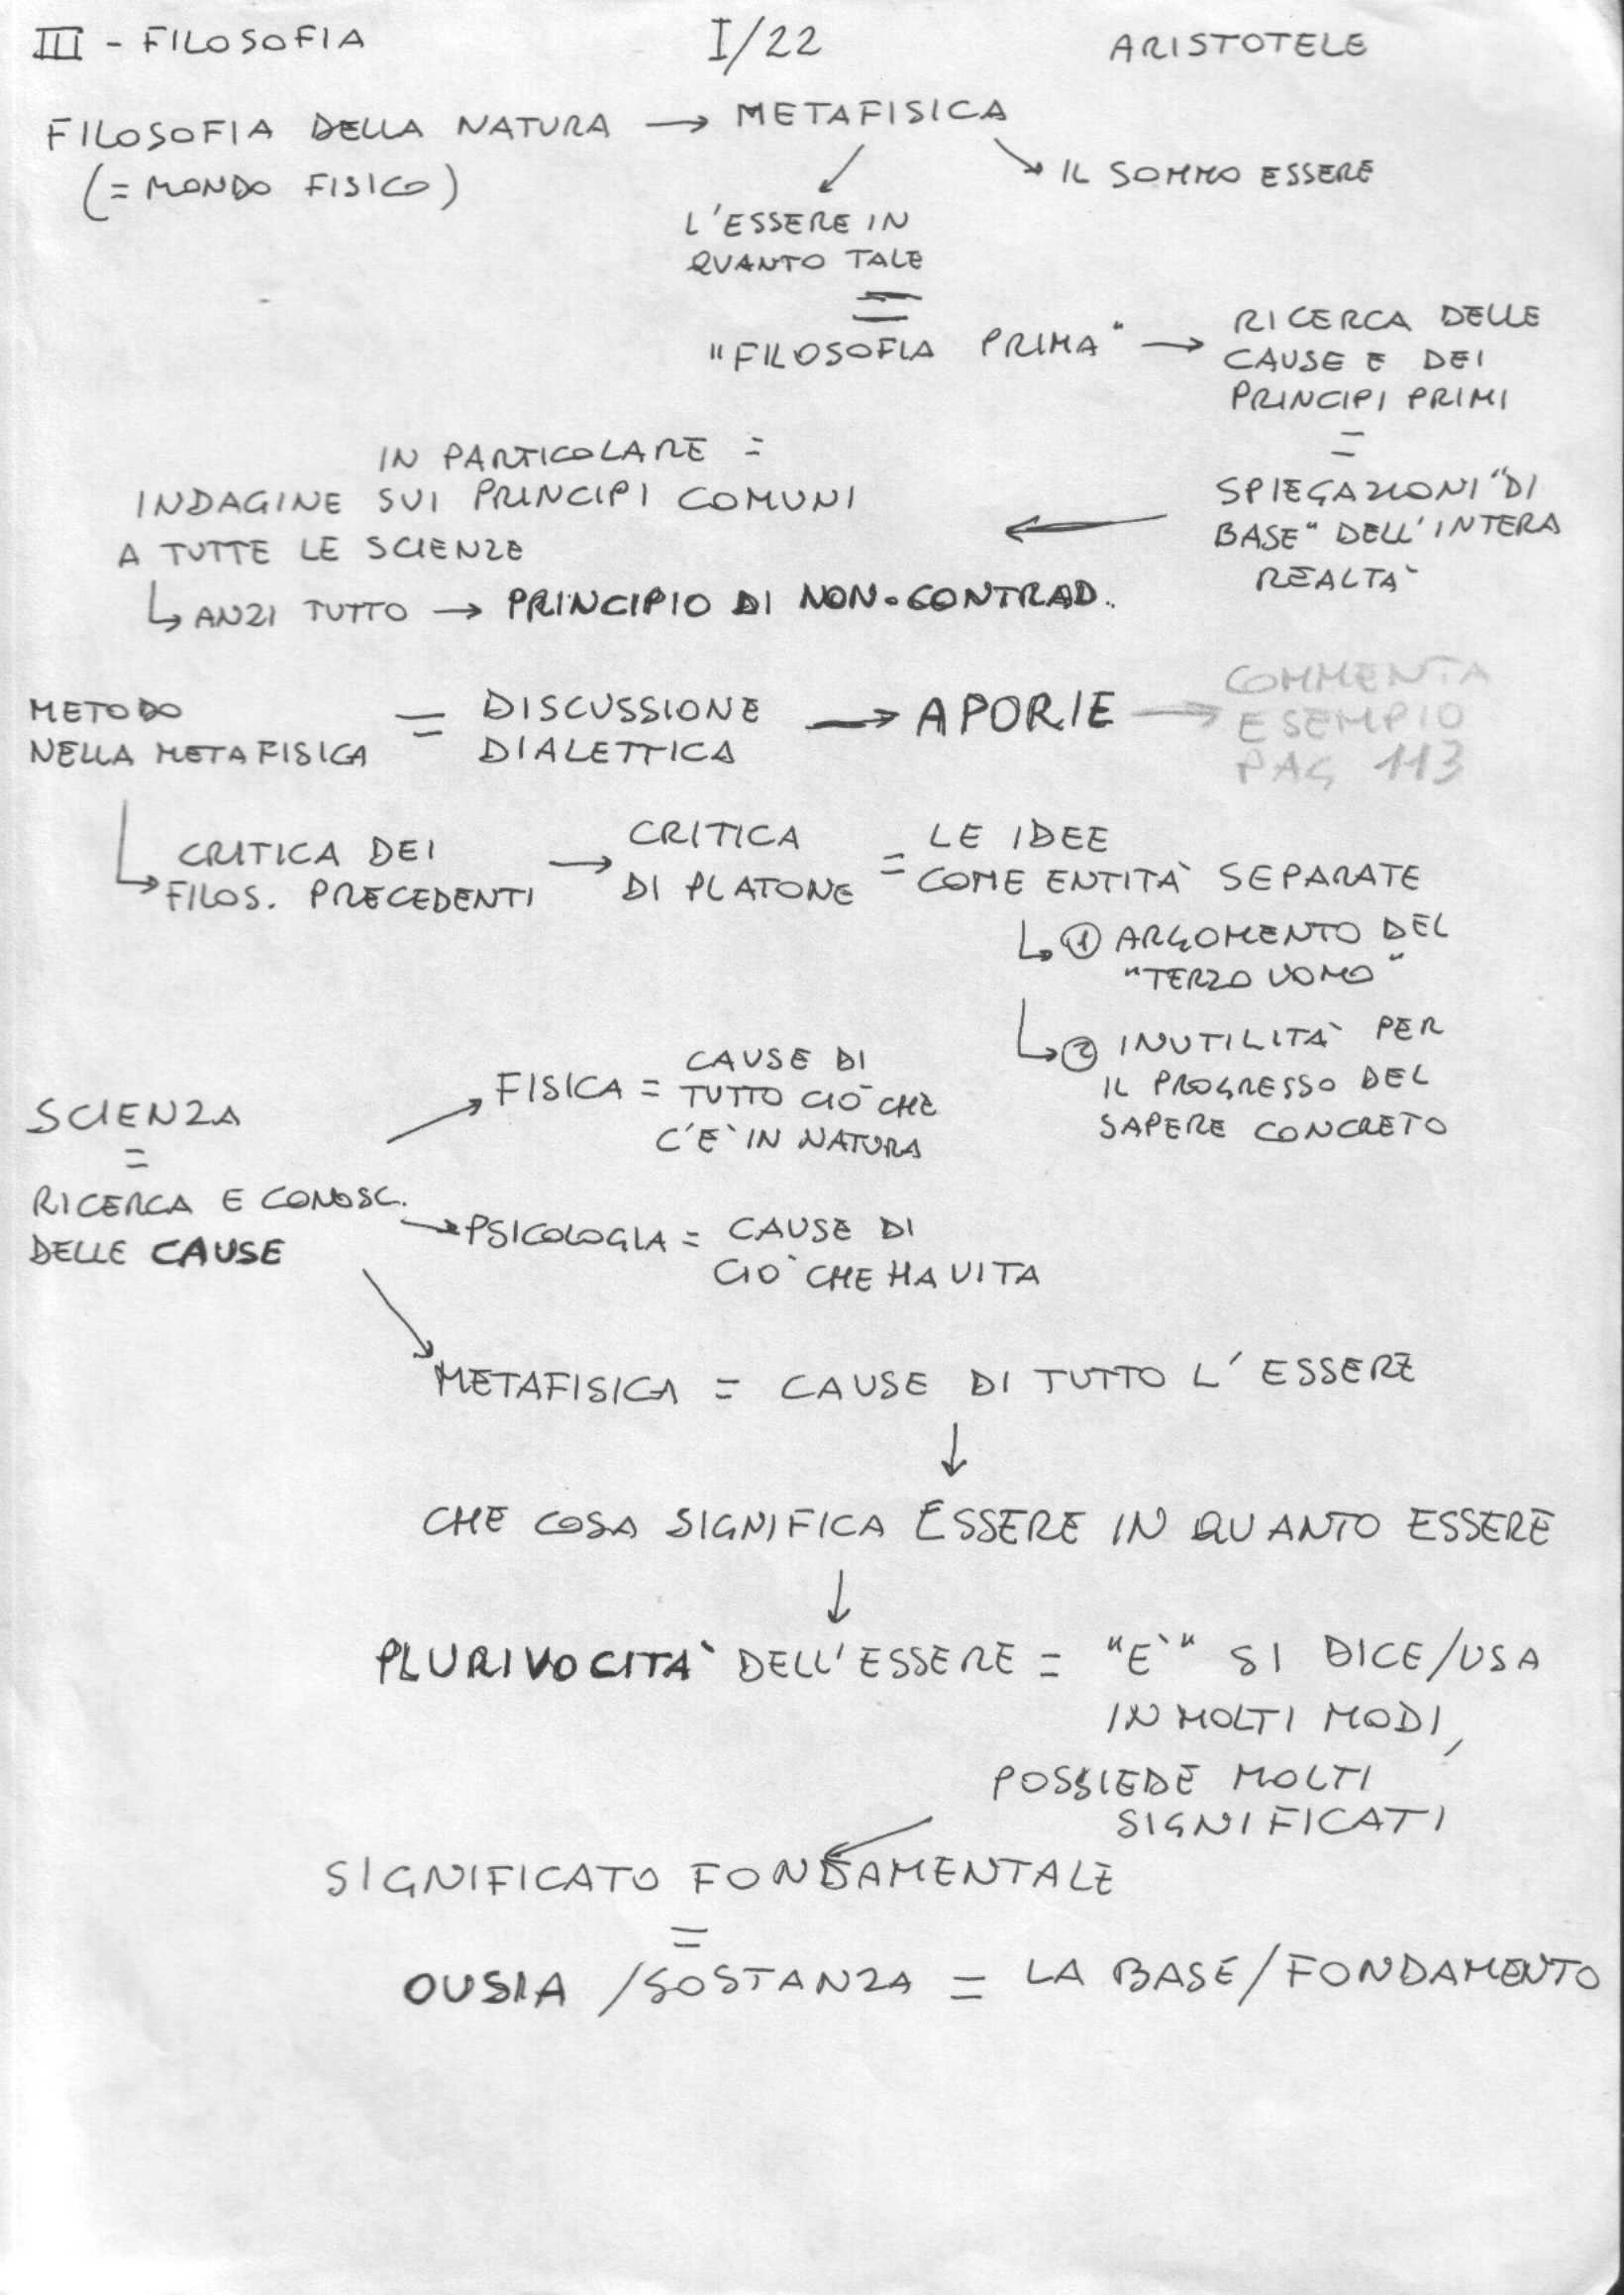 III - FILOSOFIA I/22 ARISTOTELE
FILOSOFIA DELLA NATURA → METAFISICA
(= MONDO FISICO)
IL SOMMO ESSERE
L'ESSERE IN
QUANTO TALE
=
"FILOSOFIA PRIMA" → RICERCA DELLE
CAUSE E DEI
PRINCIPI PRIMI
=
SPIEGAZIONI "DI
BASE" DELL'INTERA
REALTA'
IN PARTICOLARE =
INDAGINE SUI PRINCIPI COMUNI
A TUTTE LE SCIENZE
↳ ANZI TUTTO → PRINCIPIO DI NON-CONTRAD.
METODO
NELLA METAFISICA
= DISCUSSIONE
DIALETTICA
→ APORIE →
COMMENTA
ESEMPIO
PAG 113
↳ CRITICA DEI
FILOS. PRECEDENTI
→ CRITICA
DI PLATONE
= LE IDEE
COME ENTITA' SEPARATE
↳ 1 ARGOMENTO DEL
"TERZO UOMO"
↳ 2 INUTILITA' PER
IL PROGRESSO DEL
SAPERE CONCRETO
SCIENZA
=
RICERCA E CONOSC.
DELLE CAUSE
FISICA = CAUSE DI
TUTTO CIO' CHE
C'E' IN NATURA
→ PSICOLOGIA = CAUSE DI
CIO' CHE HA VITA
METAFISICA = CAUSE DI TUTTO L'ESSERE
↓
CHE COSA SIGNIFICA ESSERE IN QUANTO ESSERE
↓
PLURIVOCITA' DELL'ESSERE = "E'" SI DICE/USA
IN MOLTI MODI,
POSSIEDE MOLTI
SIGNIFICATI
SIGNIFICATO FONDAMENTALE
=
OUSIA /SOSTANZA = LA BASE/FONDAMENTO